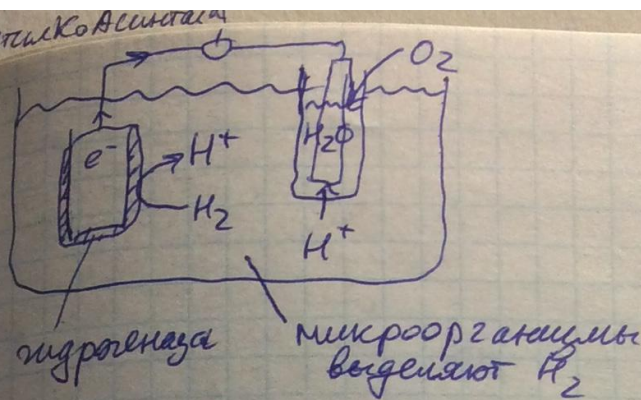 O₂
e⁻
H⁺
H₂O
H₂
H⁺
гидрогеназа
микроорганизмы
выделяют H₂